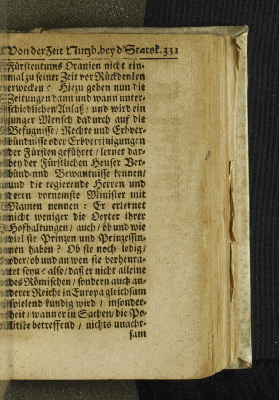 Von der Zeit Nutzb. bey d' Statsk. 331
Fürstentums Oranien nicht ein-
mal zu seiner Zeit vor Rückdencken
erwecken? Hiezu geben nun die
Zeitungen dann und wann unter-
schiedlichen Anlaß / und wird ein
junger Mensch dadurch auf die
Befugnisse / Rechte und Erbver-
bündnisse oder Erbvereinigungen
der Fürsten geführt / lernet dar-
bey der Fürstlichen Heuser Ver-
bünd- und Bewantnisse kennen /
und die regierende Herren und
deren vornemste Minister mit
Namen nennen: Er erlernet
nicht weniger die Oerter ihrer
Hofhaltungen / auch / ob und wie
viel sie Prinzen und Prinzessin-
nen haben? Ob sie noch ledig /
oder / ob und an wen sie verheura-
tet seyn? also / daß er nicht alleine
des Römischen / sondern auch an-
derer Reiche in Europa gleichsam
spielend kundig wird / insonder-
heit / wann er in Sachen / die Po-
litike betreffend / nichts unacht-
sam